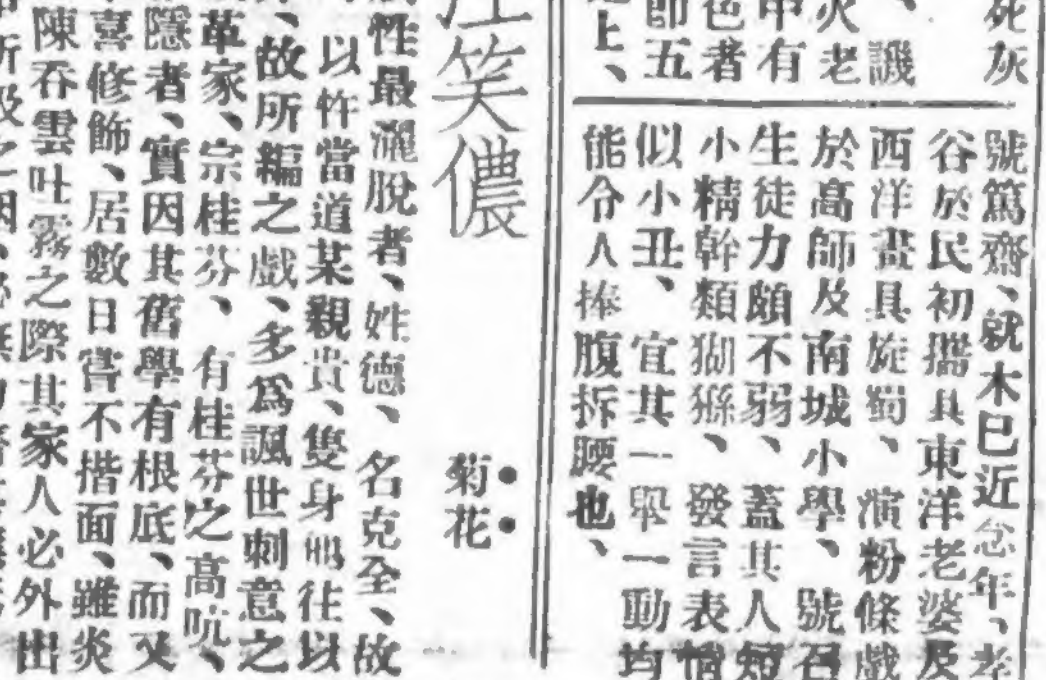 死灰
、譏
火老
中有
色者
師五
上、
號篤齋、就木已近念年、孝
谷於民初攜其東洋老婆及
西洋畫具旋蜀、演粉條戲
於高師及南城小學、號召
生徒力頗不弱、蓋其人短
小精幹類猢猻、發言表情
似小丑、宜其一舉一動均
能令人捧腹拆腰也、
笑儂
菊花
性最灑脫者、姓德、名克全、故
以忤當道某親貴、隻身往以
、故所編之戲、多爲諷世刺意之
革家、宗桂芬、有桂芬之高吭、
隱者、實因其舊學有根底、而又
喜修飾、居數日嘗不揩面、雖炎
陳吞雲吐霧之際其家人必外出
所